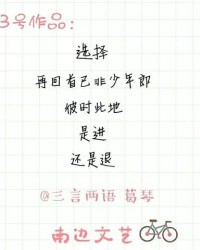 3号作品:
选择
再回首已非少年郎
彼时此地
是进
还是退
@三言两语 葛琴
南边文艺